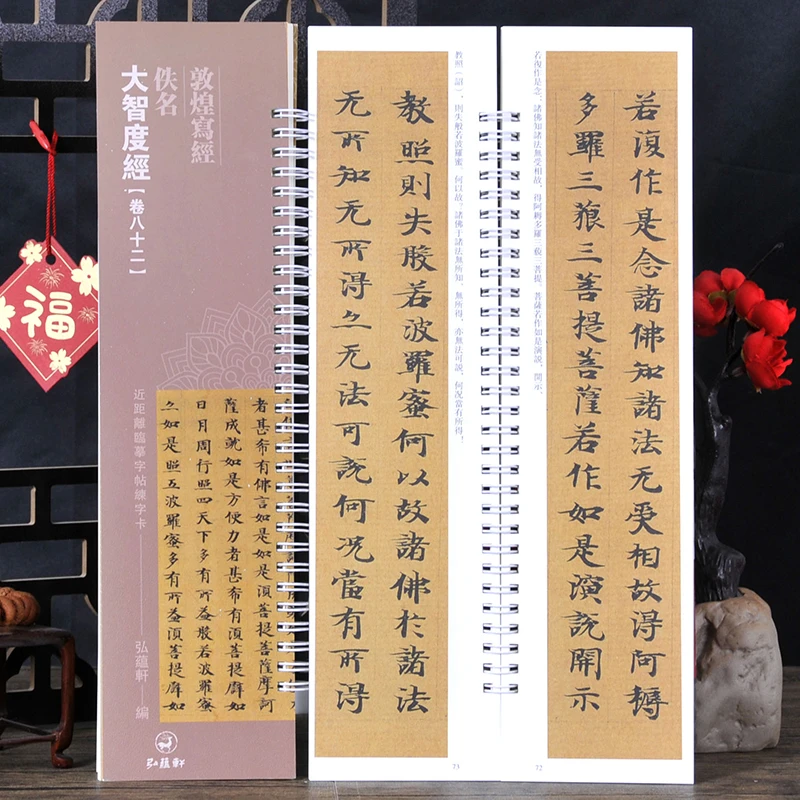 敦煌寫經
佚名
大智度經【卷八十二】
近距離臨摹字帖練字卡
弘蘊軒 編
者甚希有佛言如是如是湏菩提菩薩摩訶
薩成就如是方便力者甚希有湏菩提辟如
日月周行照四天下多有所益般若波羅蜜
亦如是照五波羅蜜多有所益湏菩提辟如
弘蘊軒
若復作是念諸佛知諸法无受相故得阿耨
多羅三藐三菩提菩薩若作如是演說開示
若復作是念：諸佛知諸法無受相故，得阿耨多羅三藐三菩提。菩薩若作如是演說、開示、
72
教照（詔），則失般若波羅蜜。何以故，諸佛于諸法無所知，無所得，亦無法可說，何況當有所得！
教照則失般若波羅蜜何以故諸佛於諸法
无所知无所得亦无法可說何況當有所得
73
福